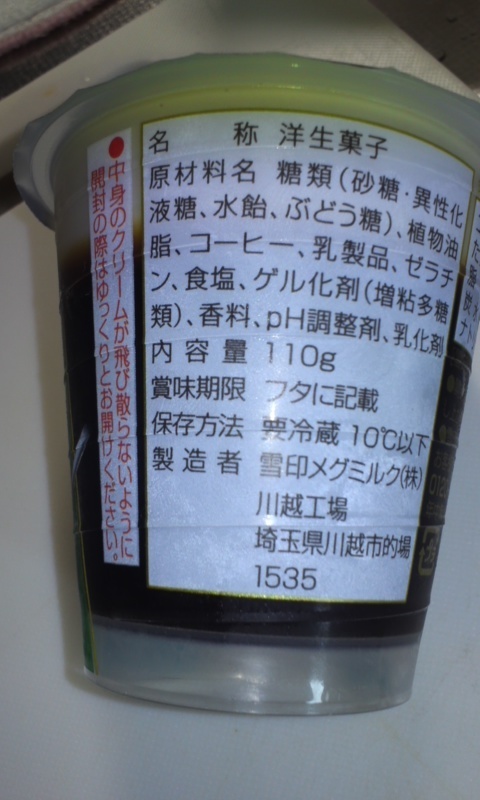 ●中身のクリームが飛び散らないように
開封の際はゆっくりとお開けください。
名 称 洋生菓子
原材料名 糖類(砂糖・異性化
液糖、水飴、ぶどう糖)、植物油
脂、コーヒー、乳製品、ゼラチ
ン、食塩、ゲル化剤(増粘多糖
類)、香料、pH調整剤、乳化剤
内容量 110g
賞味期限 フタに記載
保存方法 要冷蔵 10℃以下
製造者 雪印メグミルク(株)
川越工場
埼玉県川越市的場
1535